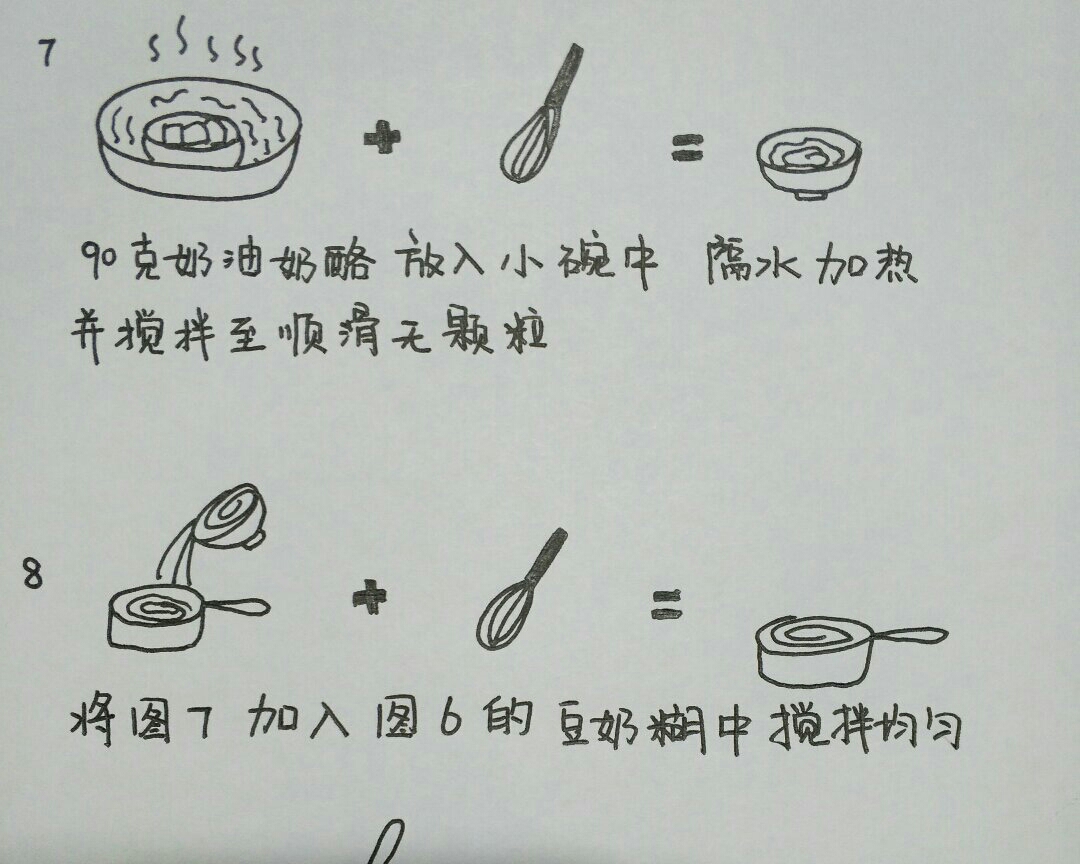 7
+ =
90克奶油奶酪 放入小碗中 隔水加热
并搅拌至顺滑无颗粒
8
+ =
将图7加入图6的豆奶糊中搅拌均匀